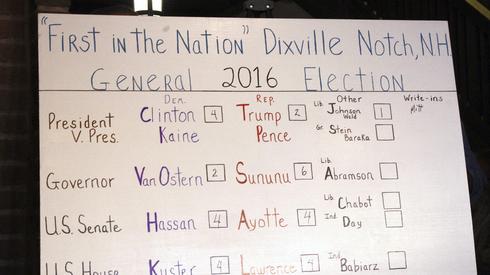 "First in the Nation" Dixville Notch, N.H.
General 2016 Election
Dem. Rep. Other Write-ins
President Clinton 4 Trump 2 Lib. Johnson Weld 1
V. Pres. Kaine Pence Gr. Stein Baraka
Governor Van Ostern 2 Sununu 6 Lib. Abramson
U.S. Senate Hassan 4 Ayotte 4 Lib. Chabot
Ind. Day
U.S. House Kuster 4 Lawrence 4 Ind Babiarz